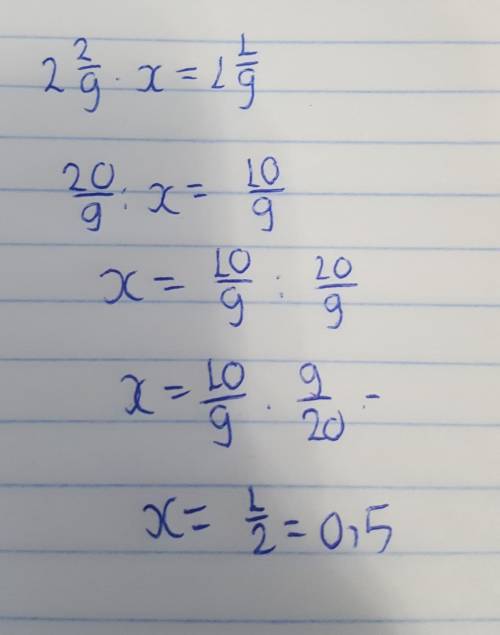 2 2/9 · x = 1 1/9
20/9 : x = 10/9
x = 10/9 : 20/9
x = 10/9 · 9/20 =
x = 1/2 = 0,5